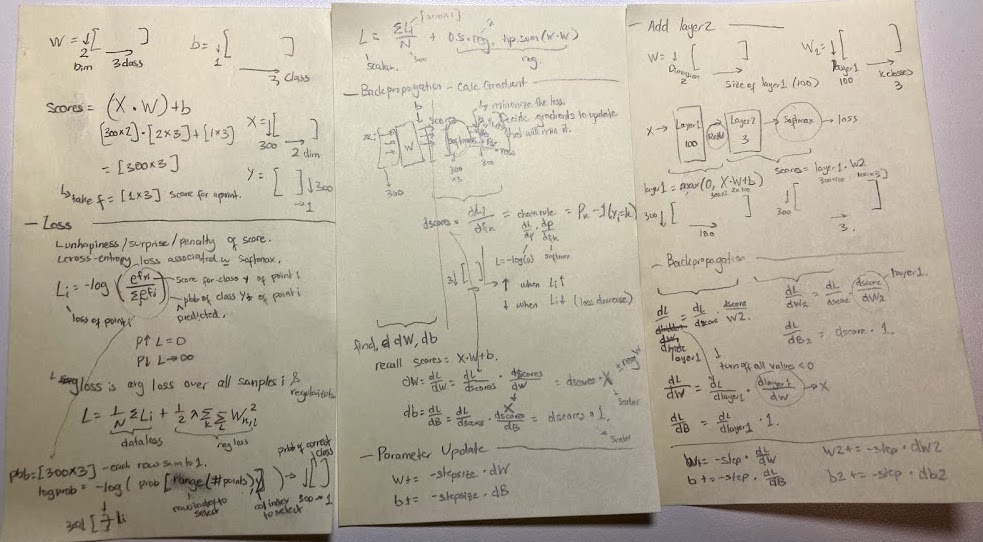 W = ↓ [ → ]
2 Dim
3 class
b = ↓ [ → ]
1
3, class
scores = (X · W) + b
[300×2] · [2×3] + [1×3]
= [300×3]
X = ↓ [ → ]
300
2 dim
Y = [ ] ↓ 300
→ 1
↳ take f = [1×3] score for a point.
— Loss
↳ unhapiness / surprise / penalty of score.
↳ cross-entropy loss associated w Softmax.
Li = -log ( e^fyi / Σ e^fj )
score for class y of point i
prob of class Yi of point i
predicted.
loss of point i
P↑ L=0
P↓ L→∞
↳ loss is avg loss over all samples i &
regularization
L = 1/N Σ Li + 1/2 λ Σk Σl W²k,l
data loss
reg loss
prob = [300×3] - each row sum to 1.
logprob = -log ( prob [ range(#points), y ] ) → ↓ [ ]
prob of correct class
row index to select
col index to select
300 → 1
L = ΣLi / N + 0.5 · reg · np.sum(W·W)
[300×1]
λ
scalar.
300
reg.
— Backpropagation - Calc Gradient
↳ minimize the loss.
Decide gradients to update
that will min it.
b
W
scores
softmax
300
300 ×3
300
dscores = dLi / dfk = chain rule = Pk - 1(yi = k)
dL/dp · dp/dfk
L = -log(p)
softmax
3↓ [ ]
↑ when Li↑
↓ when Li↓ (loss decrease)
find, dW, db
recall scores = X·W+b.
dW = dL/dW = dL/dscores · dscores/dW = dscores · X
reg·W
scalar
db = dL/dB = dL/dscores · dscores/dB = dscores · 1.
scalar
— Parameter Update
w += -stepsize · dW
b += -stepsize · dB
— Add layer2
W = ↓ [ → ]
Dimension 2
size of layer 1 (100)
W2 = ↓ [ → ]
layer 1
100
k classes
3
X → Layer1 100 → ReLU → Layer2 3 → Softmax → loss
layer1 = max(0, X·W+b)
scores = layer1 · W2
300 ↓ [ ]
100
300 ↓ [ ]
→ 3.
— Backpropagation
layer1.
dL/dlayer1 = dL/dscore · dscore/W2.
dL/dW2 = dL/dscore · dscore/dW2
dL/dB2 = dscore · 1.
↓ turn off all value < 0
dL/dW = dL/dlayer1 · dlayer1/dW → X
dL/dB = dL/dlayer1 · 1.
W += -step · dL/dW
W2 += -step · dW2
b += -step · dL/dB
b2 += -step · db2